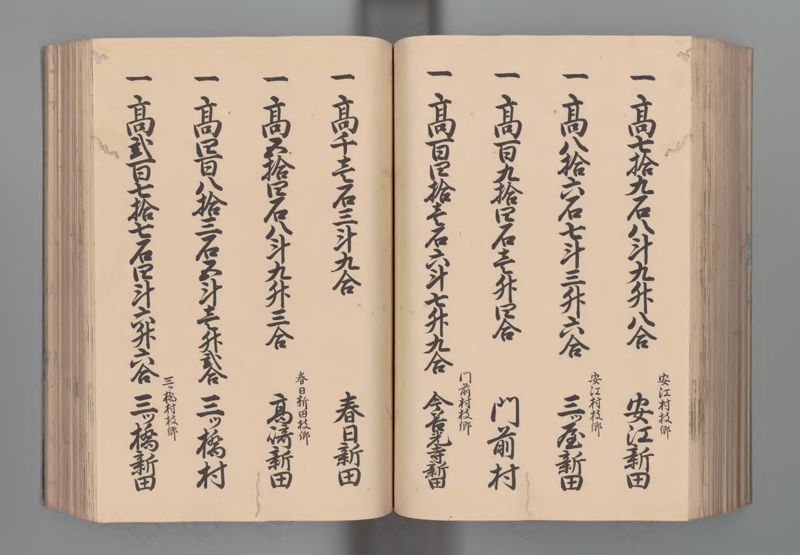 一 高七拾九石八斗九升八合 安江村枝郷 安江新田
一 高八拾六石七斗三升六合 安江村枝郷 三ッ屋新田
一 高百九拾四石壱升四合 門前村
一 高百四拾壱石六斗七升九合 門前村枝郷 今善光寺新田
一 高千壱石三斗九合 春日新田
一 高五拾四石八斗九升三合 春日新田枝郷 高崎新田
一 高四百八拾三石五斗壱升弐合 三ッ橋村
一 高弐百七拾七石四斗六升六合 三ッ橋村枝郷 三ッ橋新田